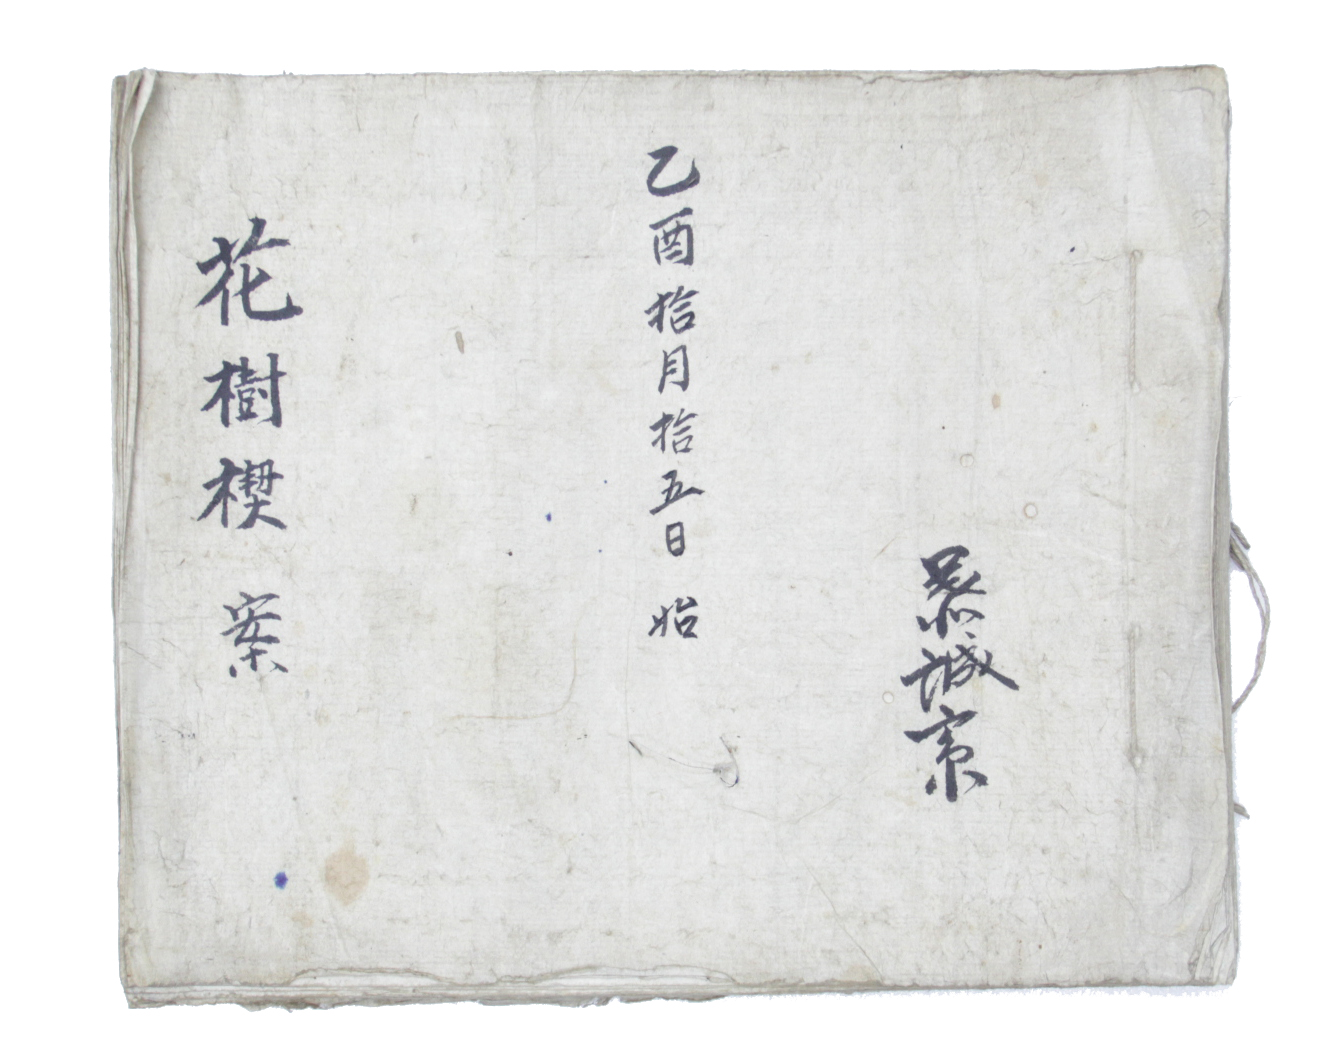 誠齋
乙酉拾月拾五日 始
花樹楔案